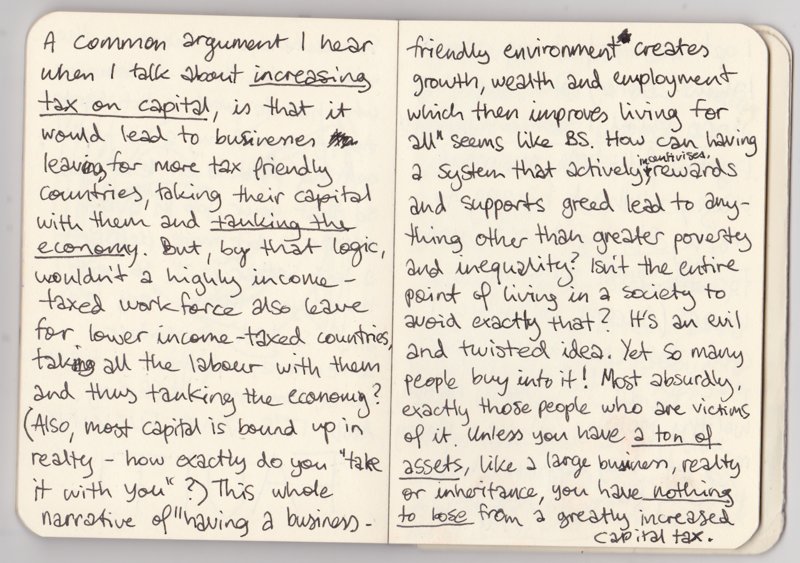 A common argument I hear
when I talk about increasing
tax on capital, is that it
would lead to businesses
leaving for more tax friendly
countries, taking their capital
with them and tanking the
economy. But, by that logic,
wouldn't a highly income-
taxed workforce also leave
for lower income-taxed countries,
taking all the labour with them
and thus tanking the economy?
(Also, most capital is bound up in
realty - how exactly do you "take
it with you"?) This whole
narrative of "having a business-
friendly environment creates
growth, wealth and employment
which then improves living for
all" seems like BS. How can having
a system that actively incentivises, rewards
and supports greed lead to any-
thing other than greater poverty
and inequality? Isn't the entire
point of living in a society to
avoid exactly that? It's an evil
and twisted idea. Yet so many
people buy into it! Most absurdly,
exactly those people who are victims
of it. Unless you have a ton of
assets, like a large business, realty
or inheritance, you have nothing
to lose from a greatly increased
capital tax.